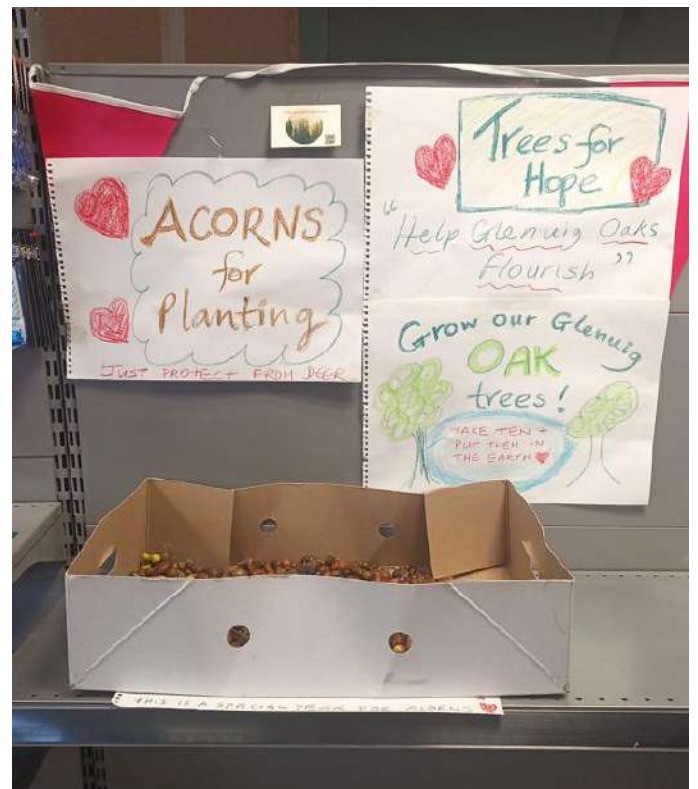 ACORNS
for
Planting
JUST PROTECT FROM DEER
Trees for
Hope
"Help Glenuig Oaks
Flourish"
Grow our Glenuig
OAK
trees!
TAKE TEN +
PUT THEM IN
THE EARTH
THIS IS A SPECIAL YEAR FOR ACORNS